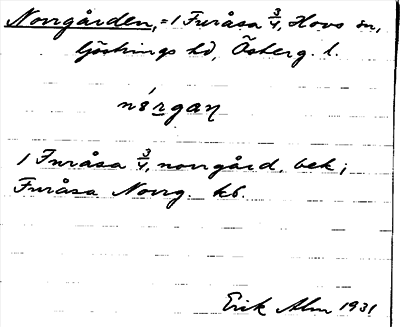 Norrgården, = 1 Furåsa 3/4, Hovs sn,
Göstrings hd, Österg. l.
1 Furåsa 3/4, norrgård, bek;
Furåsa Norrg. kb.
Erik Alm 1931